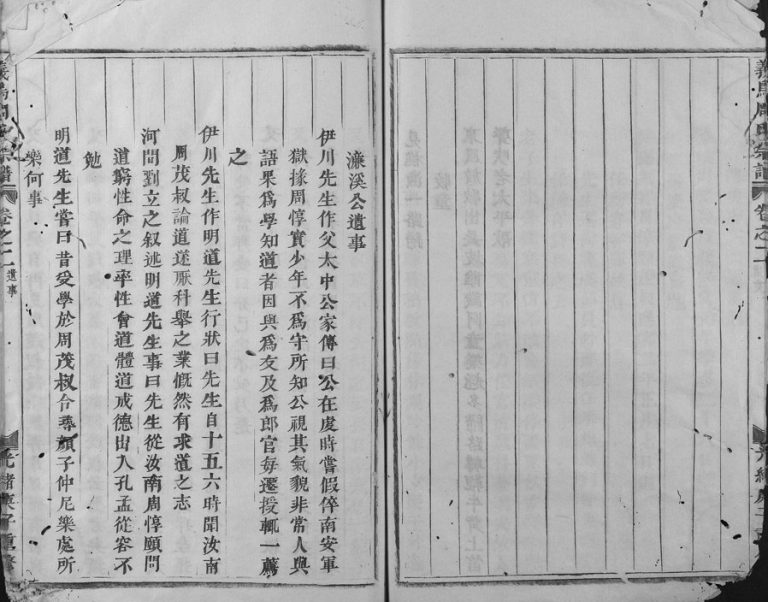 義烏周氏宗譜 卷之二
光緒庚子重
濂溪公遺事
伊川先生作父太中公家傳曰公在虔時嘗假倅南安軍
獄掾周惇實少年不爲守所知公視其氣貌非常人與
語果爲學知道者因與爲友及爲郎官每遷授輒一薦
之
伊川先生作明道先生行狀曰先生自十五六時聞汝南
周茂叔論道遂厭科舉之業慨然有求道之志
河間劉立之叙述明道先生事曰先生從汝南周惇頤問
道窮性命之理率性會道體道成德出入孔孟從容不
勉
明道先生嘗曰昔受學於周茂叔令尋顏子仲尼樂處所
樂何事
義烏周氏宗譜 卷之二 遺事
光緒庚子重